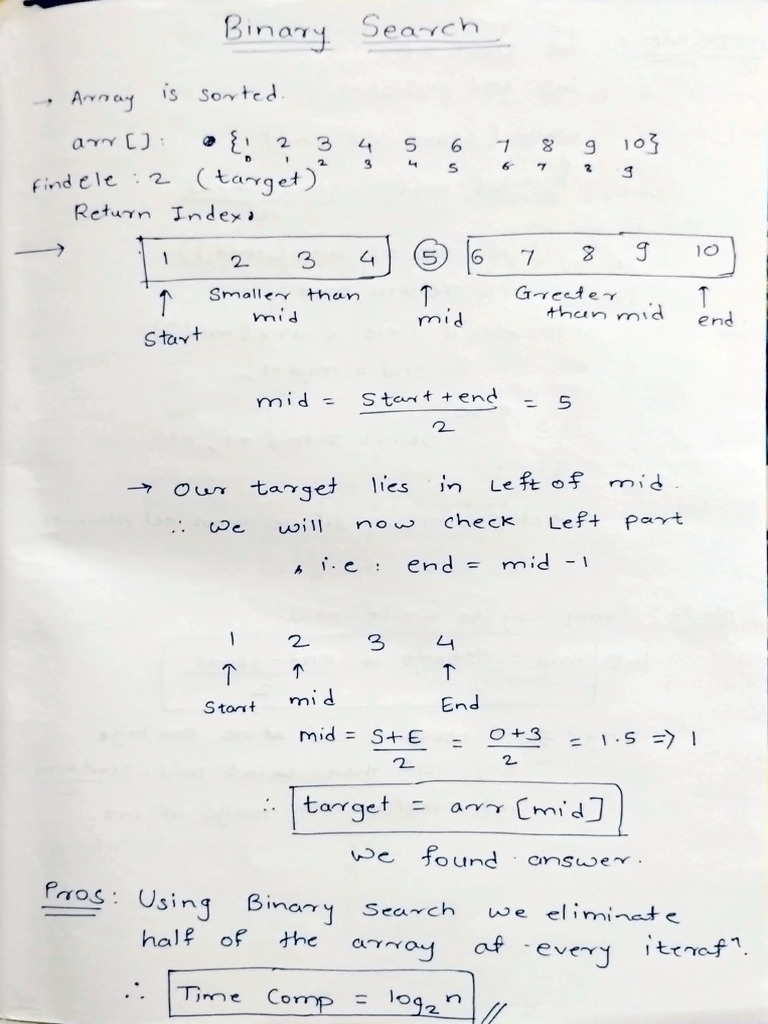 Binary Search
→ Array is sorted.
arr[]: {1 2 3 4 5 6 7 8 9 10}
0 1 2 3 4 5 6 7 8 9
Find ele : 2 (target)
Return Index.
→ 1 2 3 4 5 6 7 8 9 10
↑ Smaller than mid ↑ Greater than mid ↑
Start mid end
mid = Start + end / 2 = 5
→ Our target lies in Left of mid.
∴ we will now check Left part
i.e : end = mid -1
1 2 3 4
↑ ↑ ↑
Start mid End
mid = S+E / 2 = 0+3 / 2 = 1.5 => 1
∴ target = arr [mid]
we found answer.
Pros : Using Binary search we eliminate
half of the array at every iteratⁿ.
∴ Time Comp = log₂n //